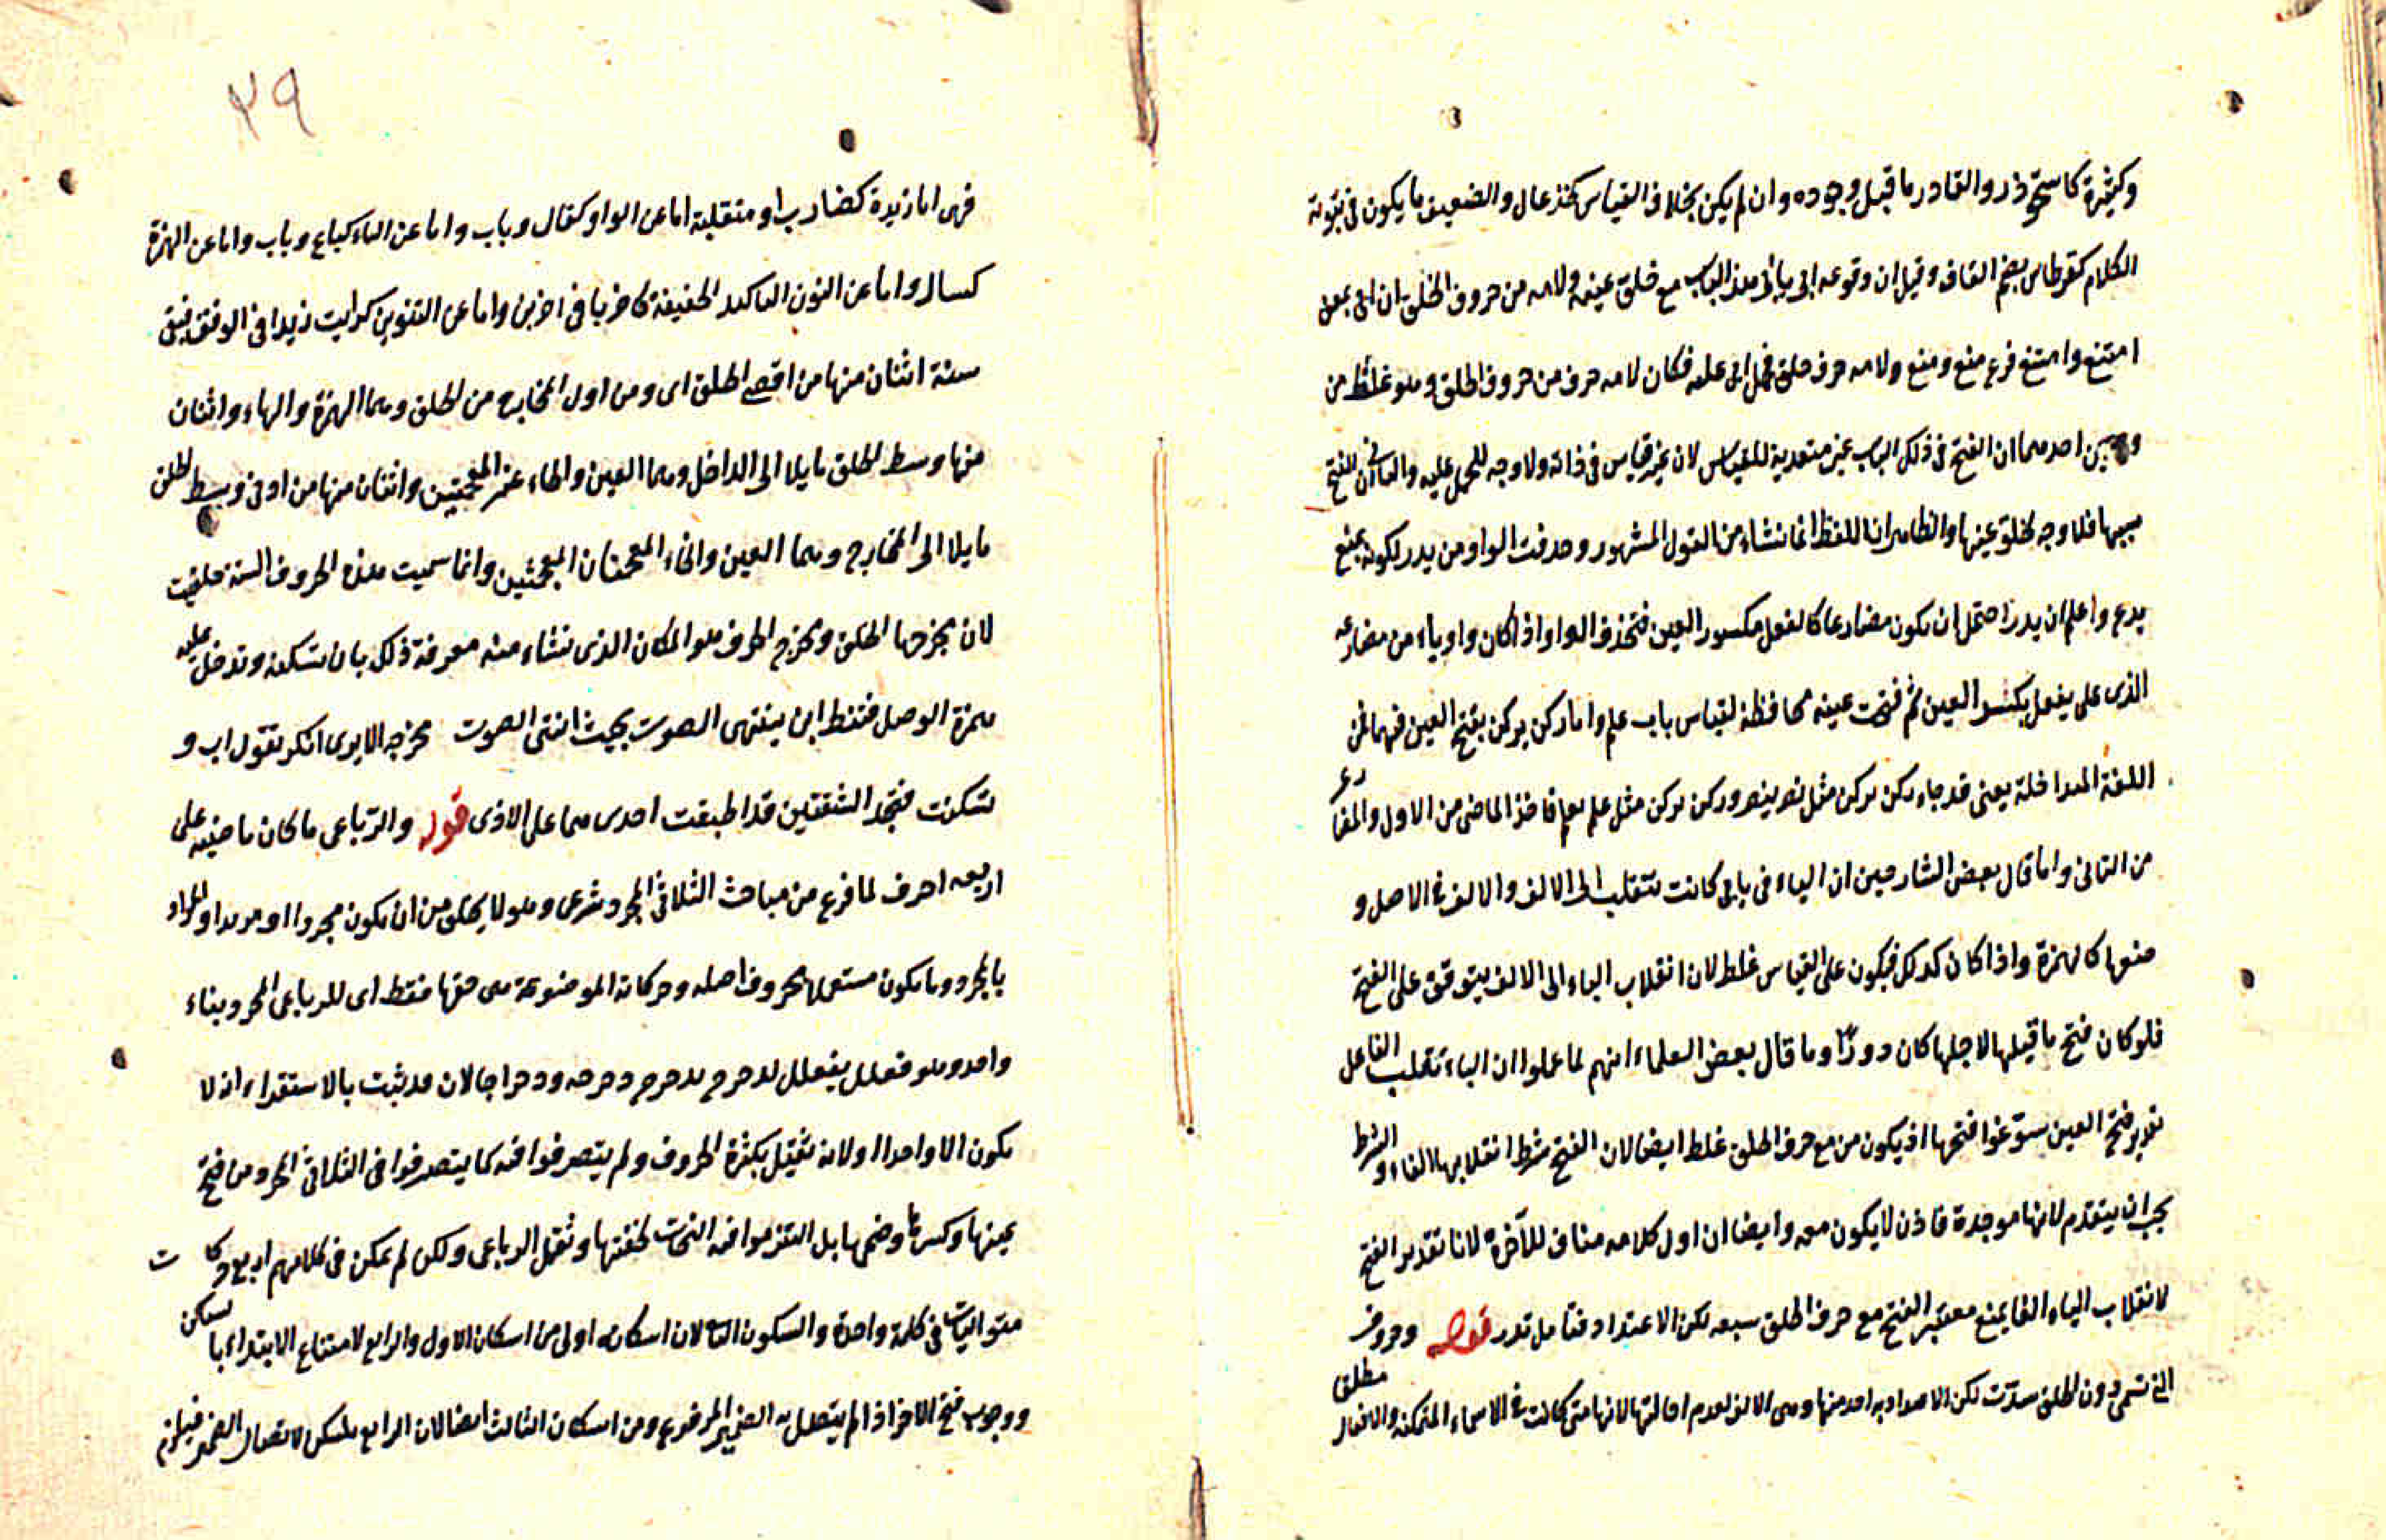 وكيثرة كاستحوذ والقادر ما قبل وجوده وان لم يكن بخلاف القياس كخذعال والضعيف ما يكون في ثبوته
الكلام كقرطاس بضم القاف وقيل ان وقوعه ابى يابى من هذا الباب مع خلو عينه ولامه من حروف الحلق ان ابى بمعنى
امتنع وامتنع فرع منع ومنع ولامه حرف حلق فحمل ابى عليه فكان لامه حرف من حروف الحلق وهو غلط من
وجهين احدهما ان الفتح في ذلك الباب غير متعدية للقياس لان غير قياس في ذاته ولا وجه للحمل عليه والثاني ان الفتح
سببها فلا وجه لخلو عينها والظاهر ان اللفظ انما نشاء من القول المشهور وحذفت الواو من يدر لكونه بمنع
يدع واعلم ان يدر احتمل ان يكون مضارعا كالفعل مكسور العين فتحذف الواو اذا كان واو ياء من مضارعه
الذى على يفعل بكسر العين ثم فتحت عينه محافظة لقياس باب علم واما ركن يركن بفتح العين فيهما فمن
اللغة المداخلة يعنى قد جاء ركن يركن مثل نصر ينصر وركن يركن مثل علم يعلم فاخذ الماضى من الاول والمضارع
من الثانى واما قال بعض الشارحين ان الياء فى يابى كانت تنقلب الى الالف والالف فى الاصل و
منها كالهمزة واذا كان كذلك فيكون على القياس غلط لان انقلاب الياء الى الالف يتوقف على الفتح
فلو كان فتح ما قبلها لاجلها كان دورًا وما قال بعض العلماء انهم لما علموا ان الياء تقلب الفا على
تقدير فتح العين سوغوا فتحها اذ يكون من مع حرف الحلق غلط ايضا لان الفتح شرط انقلابها الفاء والشرط
يجب ان يتقدم لانها موجدة فاذن لا يكون معه وايضا ان اول كلامه مناف للآخرة لانا تقدير الفتح
لانقلاب الياء الفا يمنع معتبر الفتح مع حرف الحلق سببه لكن الاعتداد فتأمل تدر قوله وحروف
التى تسمى حروف الحلق ستة لكن لا مراد به احد منها وهى الالف لعدم اصالتها لانها متى كانت فى الاسماء المتمكنة والافعال مطلقا
٣٩
فهى اما زيدة كضارب او منقلبة اما عن الواو كقال وباب واما عن الياء كباع وناب واما عن الهمزة
كسال واما عن النون التاكيد الخفيفة كاضربا فى اضربن واما عن التنوين كرايت زيدا فى الوقف فبقى
ستة اثنان منها من اقصى الحلق اى ومن اول المخارج من الحلق وهما الهمزة والهاء واثنان
منها وسط الحلق مايلا الى الداخل وهما العين والحاء غير المعجمتين واثنان منها من ادنى وسط الحلق
مايلا الى المخارج وهما الغين والخاء المعجمتان المعجمتين وانما سميت هذه الحروف الستة حلقيت
لان مخرجها الحلق ومخرج الحرف هو المكان الذى نشاء منه معرفة ذلك بان تسكنه وتدخل عليه
همزة الوصل فتنظر اين ينتهى الصوت بحيث انتهى الصوت مخرجه الا يرى انك تقول اب و
تسكنت فتجد الشفتين قد اطبقت احدىهما على الاخرى قوله والرباعى ما كان ماضيه على
اربعه احرف لما فرغ من مباحث الثلاثى المجرد شرع وهو لا يخلو من ان يكون مجردا او مزيدا والمراد
بالمجرد وما يكون مستعملها بحروف اصله وحركاته الموضوعة هى حقها فقط اى للرباعى المجرد بناء
واحد وهو فعلل يفعلل لدحرج يدحرج دحرجه ودحراجا لان قد ثبت بالاستقراء ان لا
يكون الا واحدا ولانه ثقيل بكثرة الحروف ولم يتصرفوا فيه كما يتصرفوا فى الثلاثى المجرد من فتح
عينها وكسرها وضمها بل التزموا فيه الفتحات لخفتها وثقل الرباعى ولكن لم يمكن فى كلامهم اربع حركات
متواليات فى كلمة واحدة والسكون الثانى لان اسكانه اولى من اسكان الاول والرابع لامتناع الابتداء بالسكن
ووجوب فتح الاخر اذا لم يتصل به الضمير المرفوع ومن اسكان الثالث ايضا لان الرابع يسكن لاتصال الضمير فيلزم